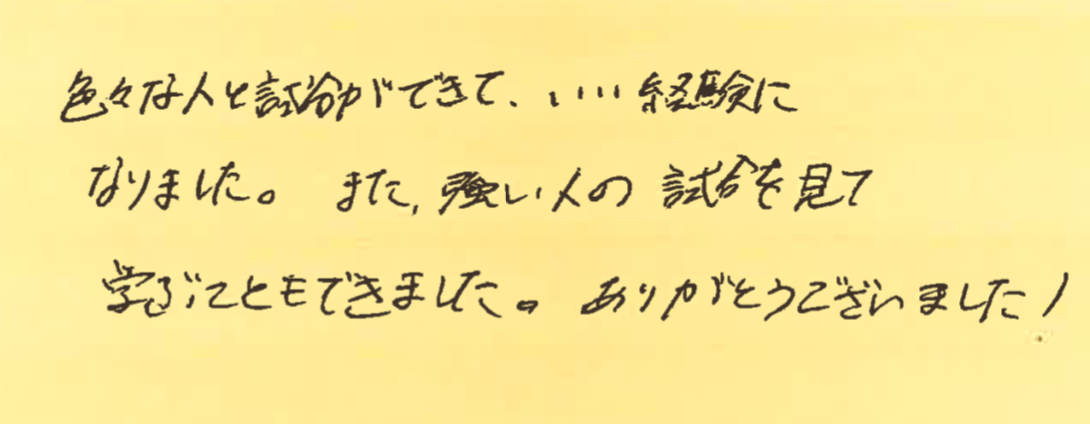 色々な人と試合ができて、いい経験に
なりました。また、強い人の試合を見て
学ぶこともできました。ありがとうございました!